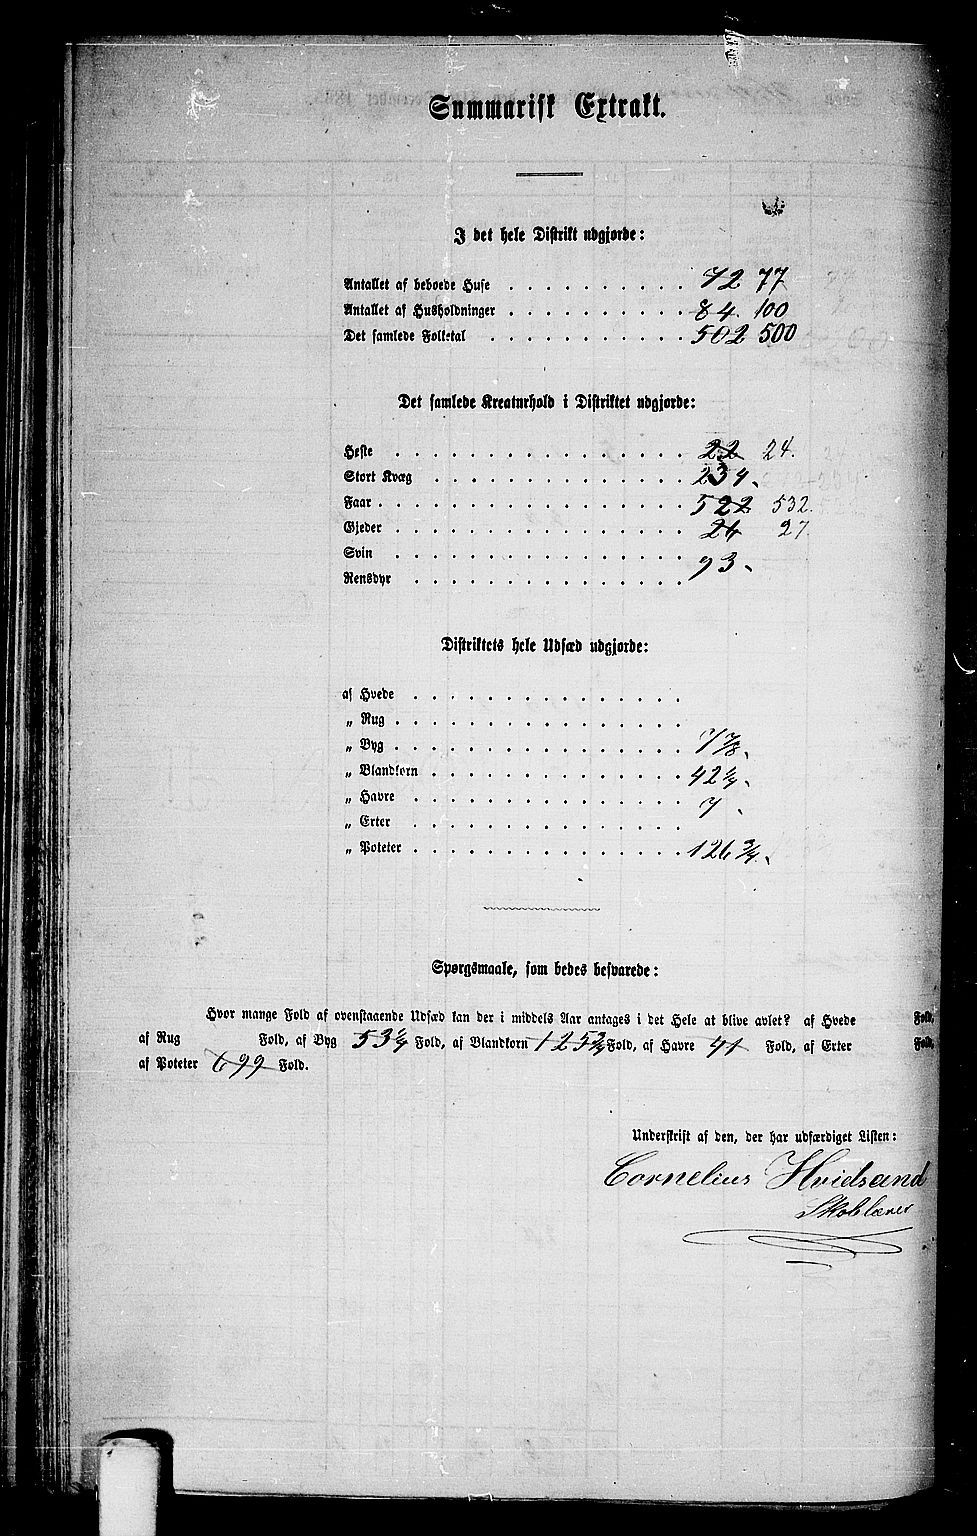 Summarisk Extrakt.
I det hele Distrikt udgjorde:
Antallet af beboede Huse . . . . . . . . . . 72 77
Antallet af Husholdninger . . . . . . . . . . 84. 100
Det samlede Folketal . . . . . . . . . . . 502 500
Det samlede Kreaturhold i Distriktet udgjorde:
Heste . . . . . . . . . . . . . . . 22 24.
Stort Kvæg . . . . . . . . . . . . . 234.
Faar . . . . . . . . . . . . . . . . 522 532.
Gjeder . . . . . . . . . . . . . . . 26 27.
Svin . . . . . . . . . . . . . . . 93.
Rensdyr . . . . . . . . . . . . . .
Distriktets hele Udsæd udgjorde:
af Hvede . . . . . . . . . . . . . .
„ Rug . . . . . . . . . . . . . . .
„ Byg . . . . . . . . . . . . . . . 7 7/8.
„ Blandkorn . . . . . . . . . . . . . 42 1/4.
„ Havre . . . . . . . . . . . . . . 7.
„ Erter . . . . . . . . . . . . . .
„ Poteter . . . . . . . . . . . . . . 126 3/4.
Spørgsmaale, som bedes besvarede:
Hvor mange Fold af ovenstaaende Udsæd kan der i middels Aar antages i det Hele at blive avlet? af Hvede Fold,
af Rug Fold, af Byg 53 1/4 Fold, af Blandkorn 125 3/4 Fold, af Havre 41 Fold, af Erter Fold,
af Poteter 699 Fold.
Underskrift af den, der har udfærdiget Listen:
Cornelius Hvidsand
Skolelærer